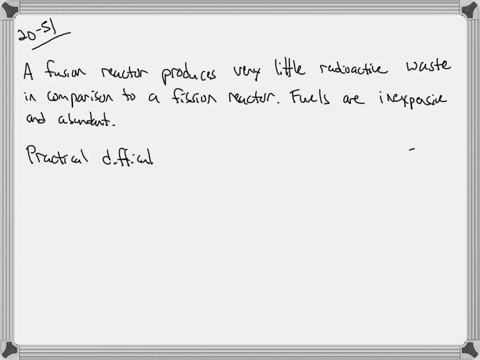 20-51
A fusion reactor produces very little radioactive waste
in comparison to a fission reactor. Fuels are inexpensive
and abundant.
Practical difficul